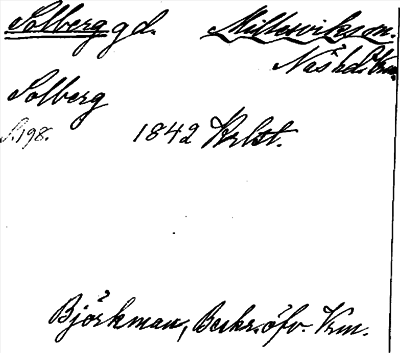 Solberg gd. Millesvikson.
Näs hd. Vrm.
Solberg
S. 198. 1842 Krlst.
Björkman, Beskr. öfv. Vrm.